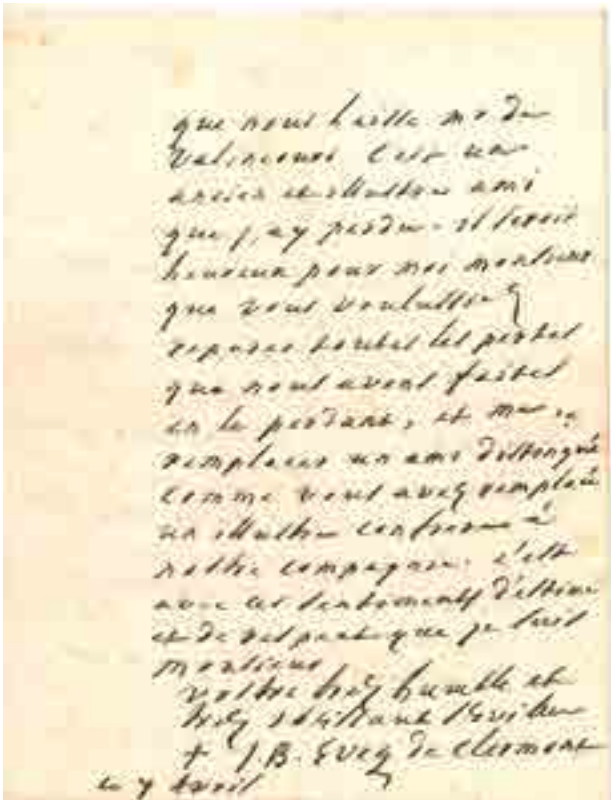 que nous laisse mr de
Valincourt C'est un
ancien et illustre ami
que j,ay perdu. il seroit
heureux pour moi monsieur
que vous voulussiez
reparer toutes les pertes
que nous avons faites
en le perdant, et me
remplacer un ami distingué
comme vous avez remplacé
un illustre confrere à
nostre compagnie. c'est
avec ces sentiments d'estime
et de respect que je suis
monsieur
vostre trez humble et
trez obeissant serviteur
+ J.B. Eveq de clermont
le 7 avril